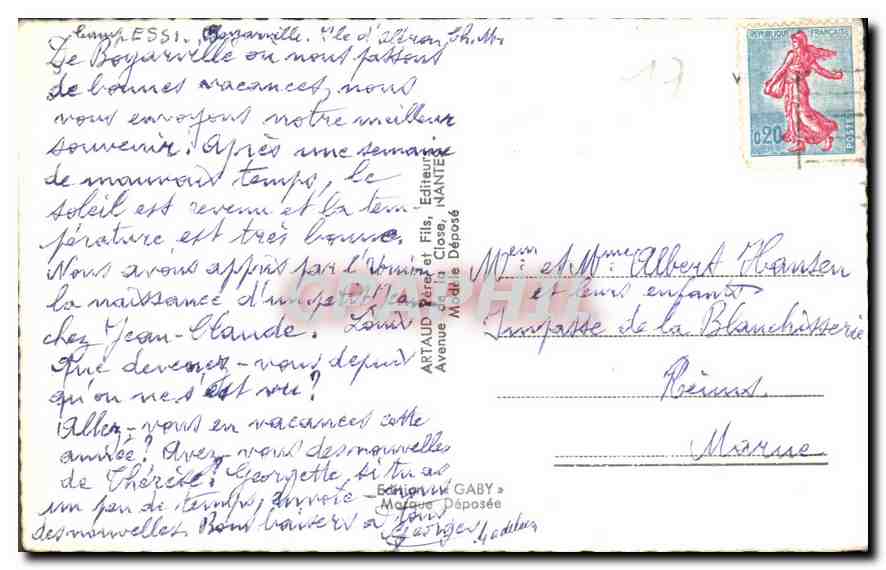 Camp ESSI. Boyarville. Ile d'Oléron Ch. Mme
De Boyarville où nous passons
de bonnes vacances, nous
vous envoyons notre meilleur
souvenir. Après une semaine
de mauvais temps, le
soleil est revenu et la tem-
pérature est très bonne.
Nous avons appris par l'Union
la naissance d'un petit Jean
chez Jean-Claude. Louis
Que devenez-vous depuis
qu'on ne s'est vu?
Allez-vous en vacances cette
année? Avez-vous des nouvelles
de Thérèse? Georgette si tu as
un peu de temps, envoie-nous
des nouvelles. Bons baisers à tous
Georges Madeleine
ARTAUD Père et Fils, Editeurs
Avenue de la Close, NANTES
Modèle Déposé
Edition « GABY »
Marque Déposée
REPUBLIQUE FRANÇAISE
0,20
POSTES
17
Mr et Mme Albert Hansen
et leurs enfants
Impasse de la Blanchisserie
Reims
Marne
CPAPHIL